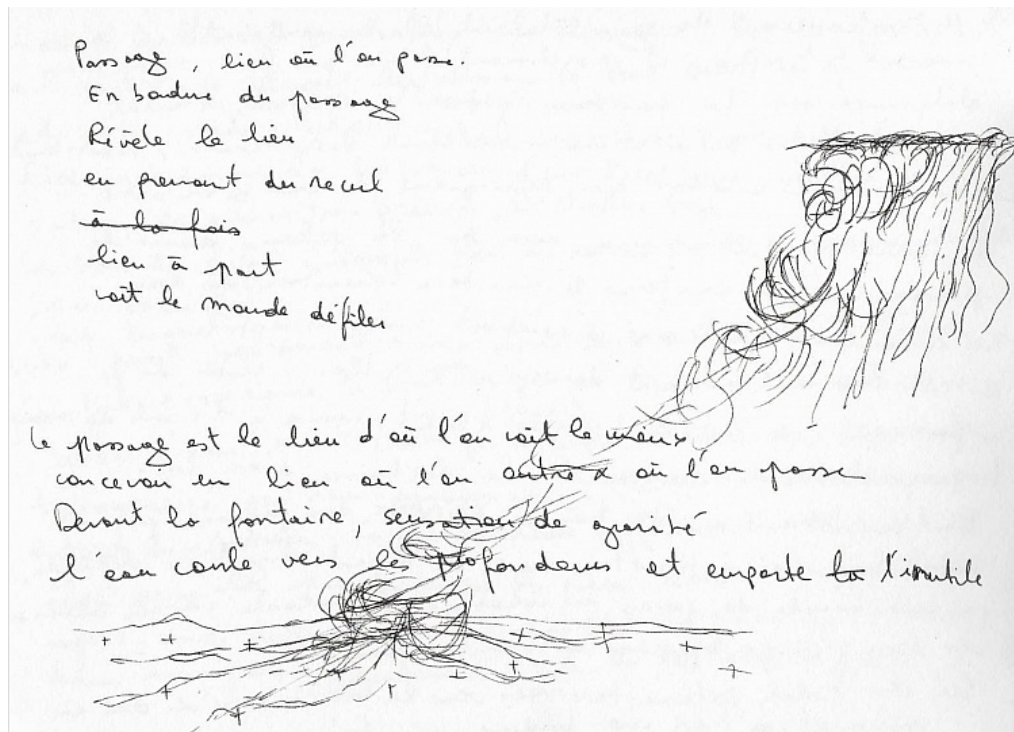 Passage, lieu où l'on passe.
En bordure du passage
Révèle le lieu
en prenant du recul
à la fois
lieu à part
voit le monde défiler
Le passage est le lieu d'où l'on voit le mieux
concevoir un lieu où l'on entre x où l'on passe
Devant la fontaine, sensation de gravité
l'eau coule vers les profondeurs et emporte la l'inutile